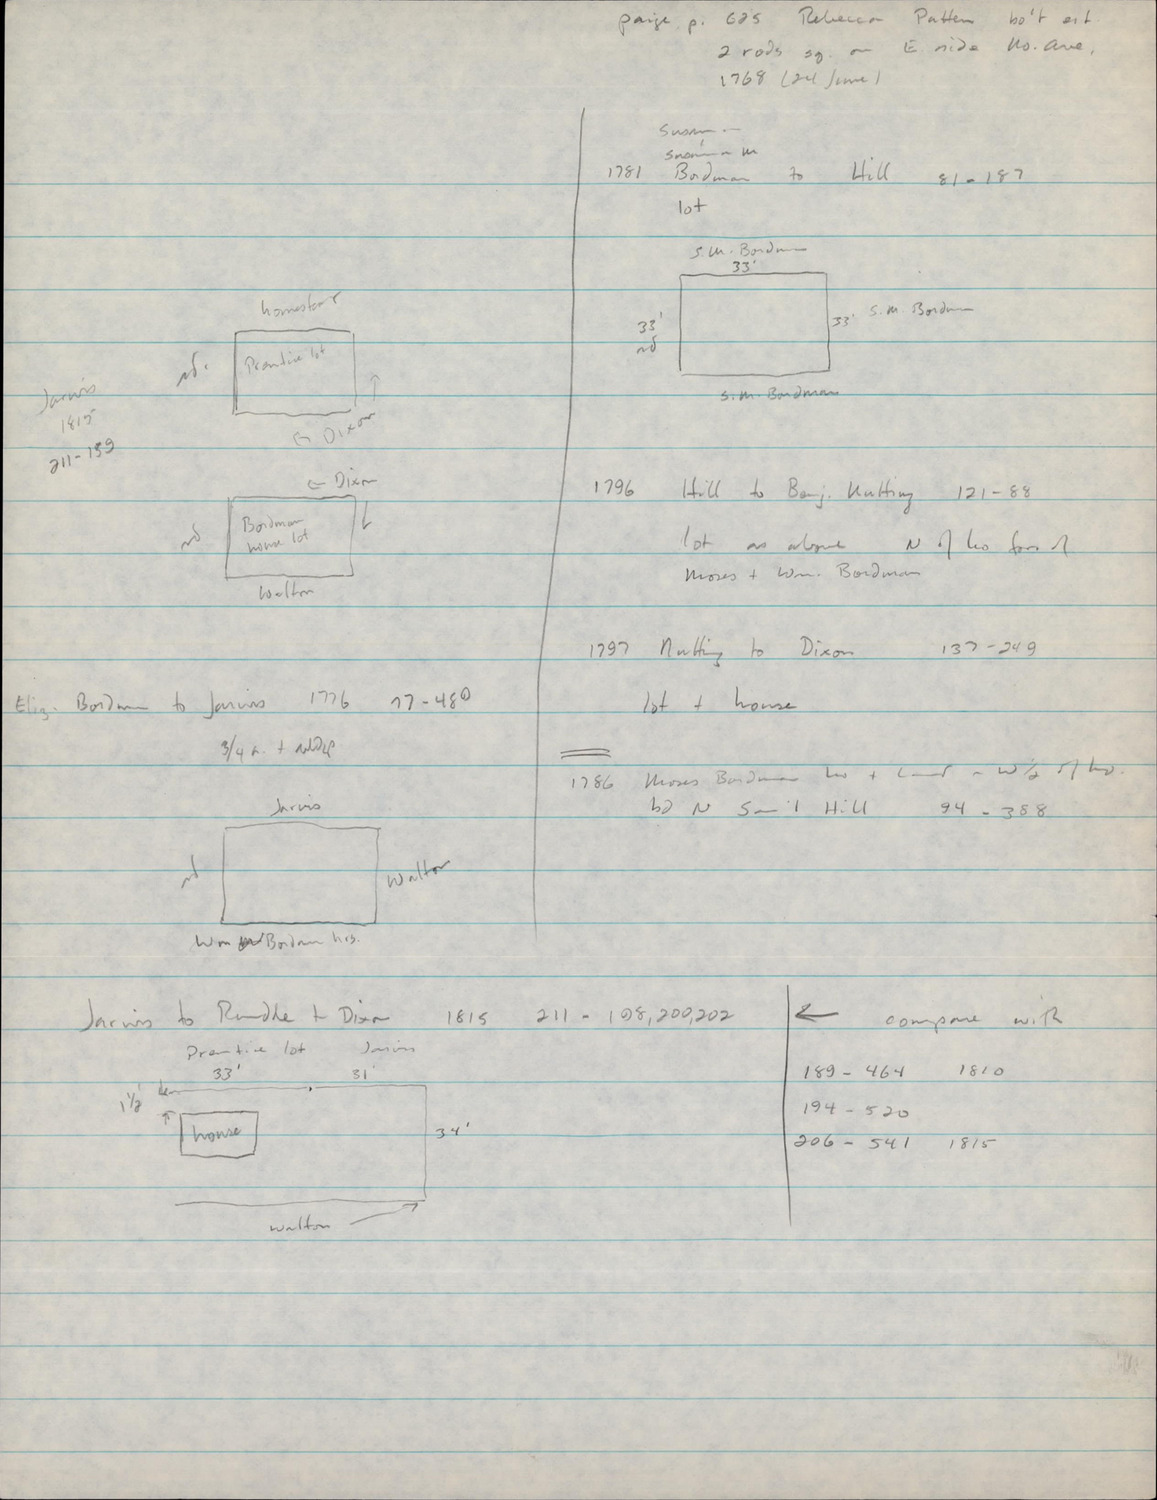 Paige p. 625 Rebecca Patten bo't est.
2 rods sq. on E. side No. Ave,
1768 (24 June)
Susan
1781 Bordman to Hill 81-187
lot
S.M. Bordman
33'
33'
rd
33' S.M. Bordman
S.M. Bordman
homestead
rd.
Prentice lot
← Dixon
Jarvis
1815
211-199
← Dixon
rd
Bordman
house lot
Walton
1796 Hill to Benj. Nutting 121-88
lot as above N of ho form of
Moses + Wm. Bordman
1797 Nutting to Dixon 137-249
lot + house
Eliz. Bordman to Jarvis 1776 77-480
3/4 a. +
1786 Moses Bordman ho + land - W ½ of ho.
bd N Sam'l Hill 94-388
Jarvis
rd
Walton
Wm Bordman hrs.
Jarvis to Rundle + Dixon 1815 211-198,200,202
← compare with
Prentice lot Jarvis
33' 31'
1½'
house
34'
Walton
189-464 1810
194-520
206-541 1815